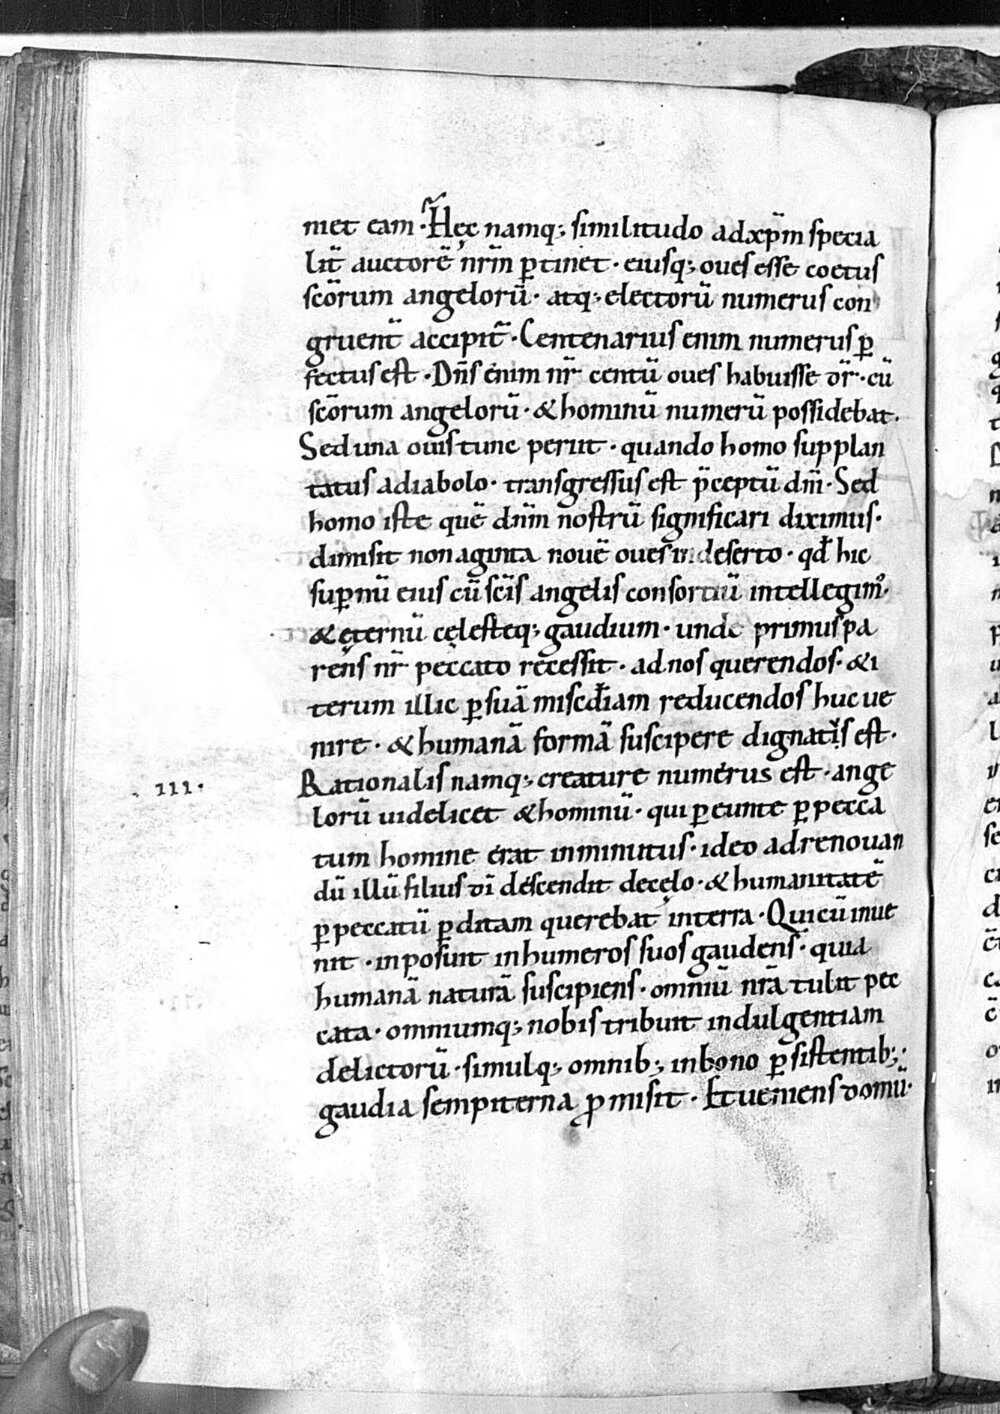 met eam · Hęc namq; similitudo adxp̄m specia
lit̄ auctorē nr̄m ꝑtinet · eiusq; oues esse coetus
scōrum angelorū · atq; electorū numerus con
gruent̄ accipit̄ · Centenarius enim numerus ꝑ
fectus est · Dn̄s enim nr̄ centū oues habuisse dr̄ · cū
scōrum angelorū · & hominū numerū possidebat ·
Sed una ouis tunc periit · quando homo supplan
tatus adiabolo · transgressus est p̄ceptū dn̄i · Sed
homo iste quē dnm̄ nostrū significari diximus ·
dimisit nonaginta nouē oues in deserto · qđ hic
suꝑnū eius cū scīs angelis consortiū intellegim᷒ ·
& ęternū cęlesteq; gaudium · unde primus pa
rens nr̄ peccato recessit · ad nos querendos · & i
terum illic ꝑ suā misc̄điam reducendos huc ue
nire · & humanā formā suscipere dignat᷒ est ·
.111. Rationalis namq; creature numerus est · ange
lorū uidelicet & hominū · qui ꝑeunte ꝑ pecca
tum homine erat inminutus · ideo adrenouan
dū illū filius dī descendit decęlo · & humanitatē
ꝑ peccatū ꝑditam querebat interra · Qui cū inue
nit · inposuit inhumeros suos gaudens · quia
humanā naturā suscipiens · omniū nr̄a tulit pec
cata · omniumq; nobis tribuit indulgentiam
delictorū · simulq; omnib; inbono ꝑsistentib; ·
gaudia sempiterna ꝓmisit · Et ueniens domū ·